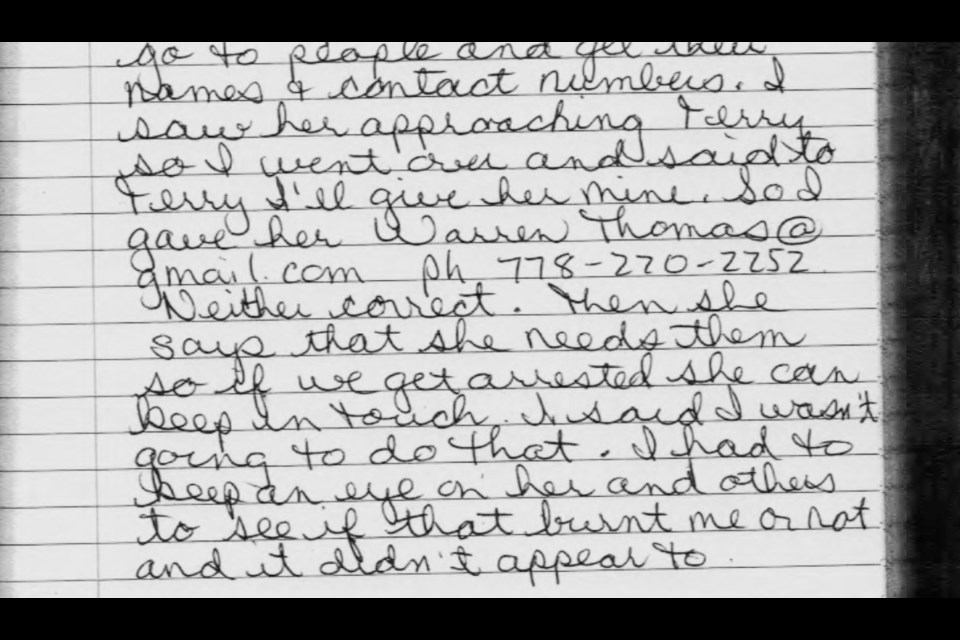 go to people and get their
names & contact numbers. I
saw her approaching Terry
so I went over and said to
Terry I'll give her mine. So I
gave her Warren Thomas@
gmail.com ph 778-220-2252
Neither correct. Then she
says that she needs them
so if we get arrested she can
keep in touch. I said I wasn't
going to do that. I had to
keep an eye on her and others
to see if that burnt me or not
and it didn't appear to.